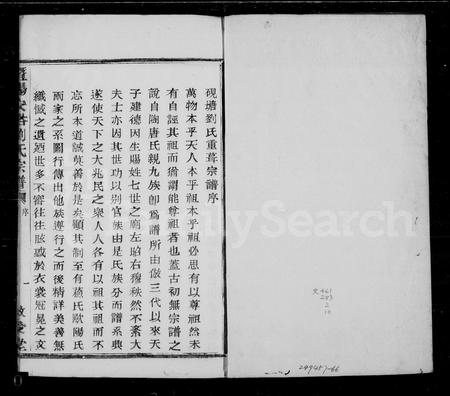 硯塘劉氏重葺宗譜序
萬物本乎天人本乎祖本乎祖必思有以尊祖然未
有自誣其祖而猶謂能尊祖者也蓋古初無宗譜之
說自陶唐氏親九族即為譜所由倣三代以來天
子建德因生賜姓七世之廟左昭右穆秩然不紊大
夫士亦因其世功以別官族由是氏族分而譜系典
遂使天下之大兆民之衆人人各有以祖其祖而不
忘所本道誠莫善於是矣顧其制至有蘓氏歐陽氏
兩家之系圖行傳出他族遵行之而後精詳美善無
纖憾之遺廼世多不審往往眩惑於衣裳冠冕之文
劉氏宗譜
序
一
敦睦堂
FamilySearch
461
283
2
10
299457-66